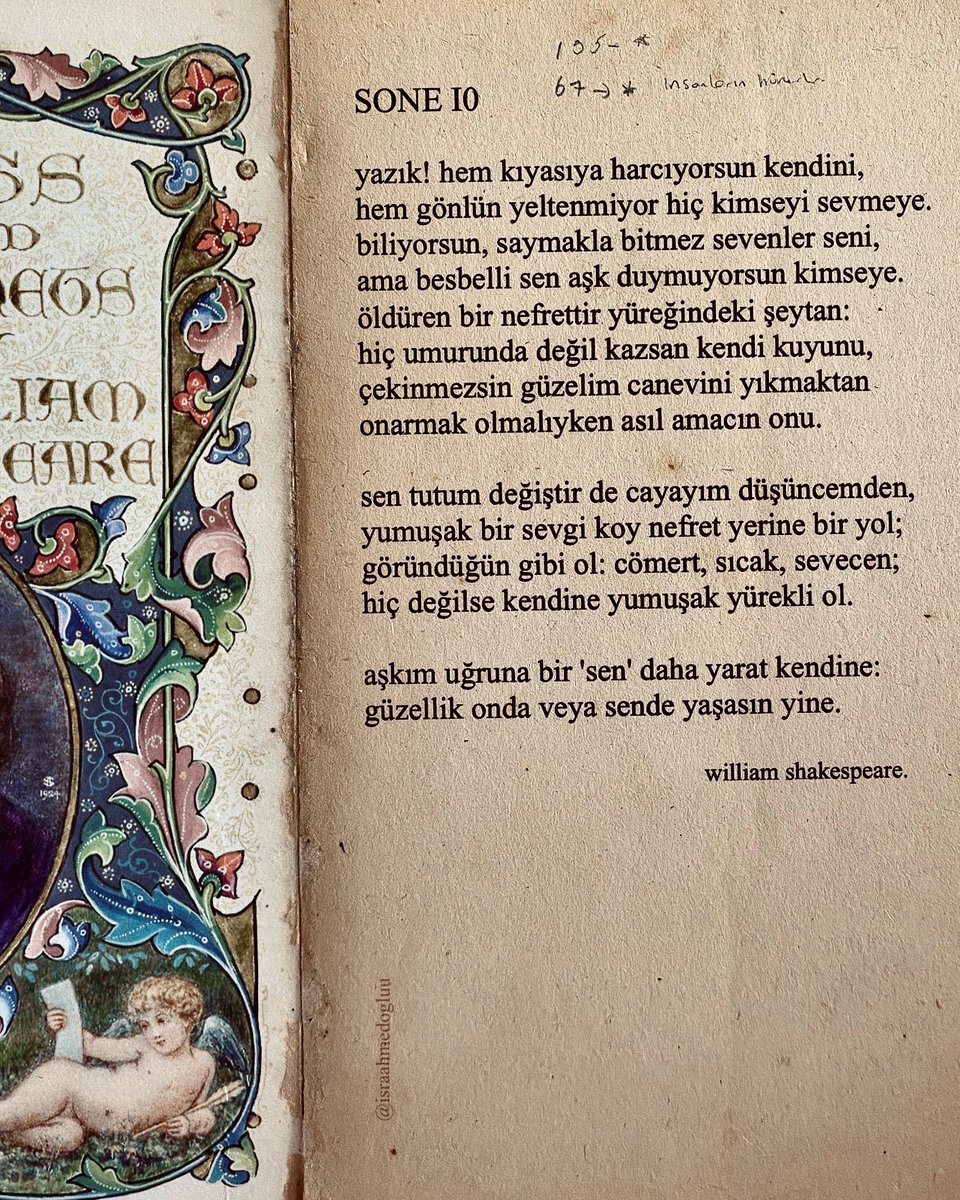 SS
EGS
LIAM
EARE
1924
105- *
67 → * insanların
SONE 10
yazık! hem kıyasıya harcıyorsun kendini,
hem gönlün yeltenmiyor hiç kimseyi sevmeye.
biliyorsun, saymakla bitmez sevenler seni,
ama besbelli sen aşk duymuyorsun kimseye.
öldüren bir nefrettir yüreğindeki şeytan:
hiç umurunda değil kazsan kendi kuyunu,
çekinmezsin güzelim canevini yıkmaktan
onarmak olmalıyken asıl amacın onu.
sen tutum değiştir de cayayım düşüncemden,
yumuşak bir sevgi koy nefret yerine bir yol;
göründüğün gibi ol: cömert, sıcak, sevecen;
hiç değilse kendine yumuşak yürekli ol.
aşkım uğruna bir 'sen' daha yarat kendine:
güzellik onda veya sende yaşasın yine.
william shakespeare.
@israahmedogluu